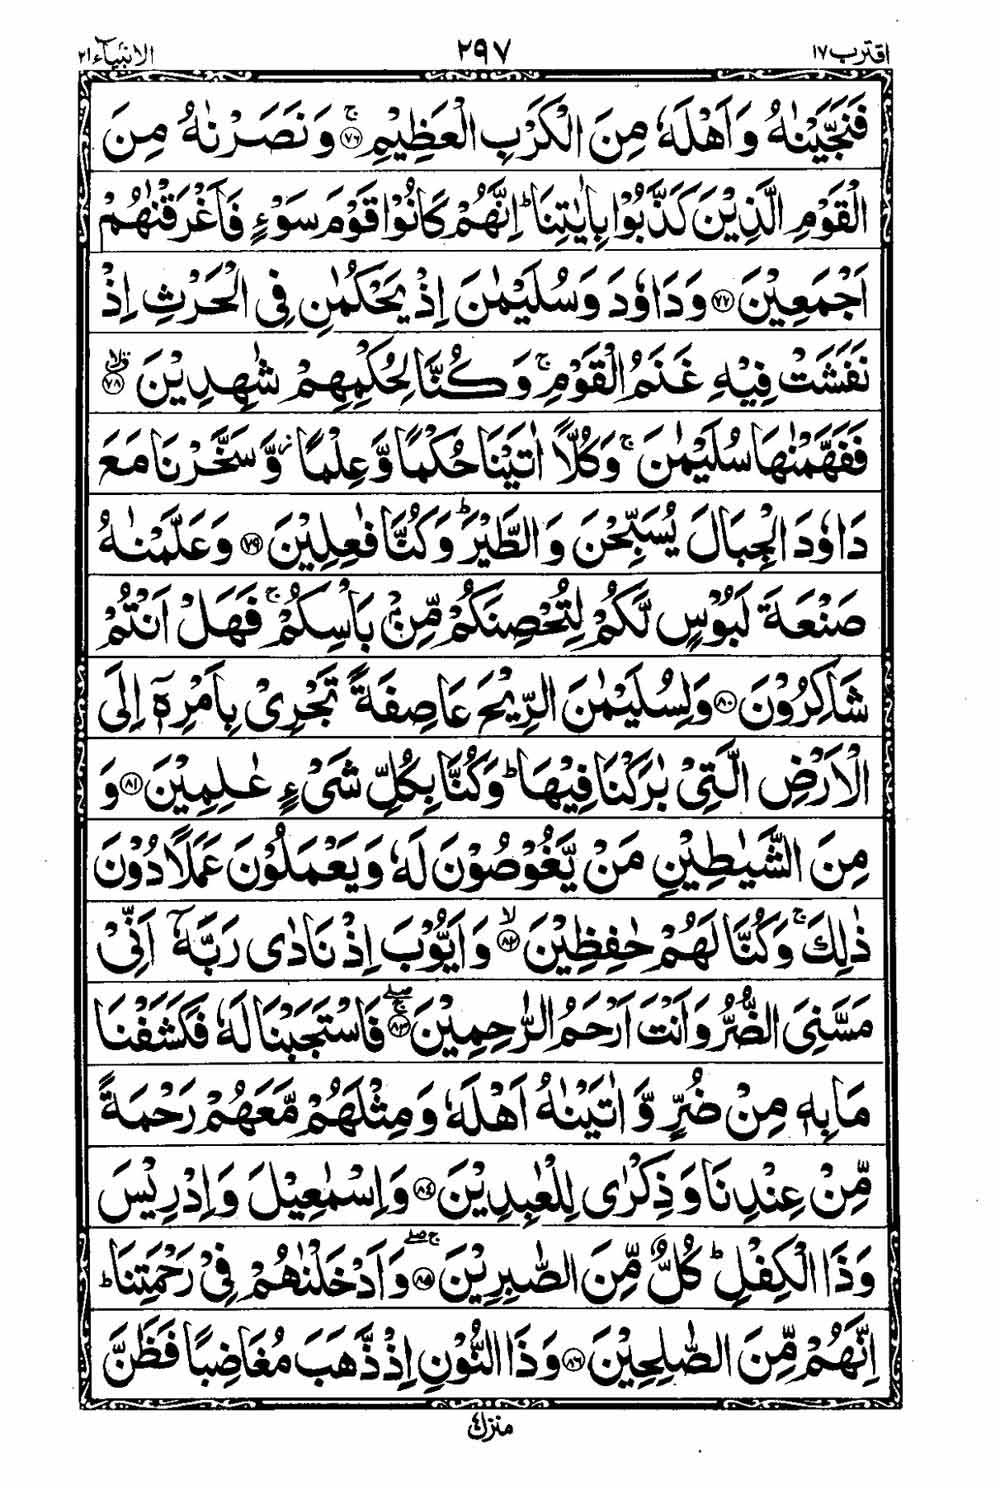 اقترب ١٧ ٢٩٧ الانبيآء ٢١
فَنَجَّيْنٰهُ وَاَهْلَهٗ مِنَ الْكَرْبِ الْعَظِيْمِ ۚ﴿٧٦﴾ وَنَصَرْنٰهُ مِنَ
الْقَوْمِ الَّذِيْنَ كَذَّبُوْا بِاٰيٰتِنَا ؕ اِنَّهُمْ كَانُوْا قَوْمَ سَوْءٍ فَاَغْرَقْنٰهُمْ
اَجْمَعِيْنَ ﴿٧٧﴾ وَدَاوٗدَ وَسُلَيْمٰنَ اِذْ يَحْكُمٰنِ فِى الْحَرْثِ اِذْ
نَفَشَتْ فِيْهِ غَنَمُ الْقَوْمِ ۚ وَكُنَّا لِحُكْمِهِمْ شٰهِدِيْنَ ﴿٧٨﴾
فَفَهَّمْنٰهَا سُلَيْمٰنَ ۚ وَكُلًّا اٰتَيْنَا حُكْمًا وَّعِلْمًا ؗ وَّسَخَّرْنَا مَعَ
دَاوٗدَ الْجِبَالَ يُسَبِّحْنَ وَالطَّيْرَ ؕ وَكُنَّا فٰعِلِيْنَ ﴿٧٩﴾ وَعَلَّمْنٰهُ
صَنْعَةَ لَبُوْسٍ لَّكُمْ لِتُحْصِنَكُمْ مِّنْۢ بَاْسِكُمْ ۚ فَهَلْ اَنْتُمْ
شَاكِرُوْنَ ﴿٨٠﴾ وَلِسُلَيْمٰنَ الرِّيْحَ عَاصِفَةً تَجْرِىْ بِاَمْرِهٖۤ اِلَى
الْاَرْضِ الَّتِىْ بٰرَكْنَا فِيْهَا ؕ وَكُنَّا بِكُلِّ شَىْءٍ عٰلِمِيْنَ ﴿٨١﴾ وَ
مِنَ الشَّيٰطِيْنِ مَنْ يَّغُوْصُوْنَ لَهٗ وَيَعْمَلُوْنَ عَمَلًا دُوْنَ
ذٰلِكَ ۚ وَكُنَّا لَهُمْ حٰفِظِيْنَ ۙ﴿٨٢﴾ وَاَيُّوْبَ اِذْ نَادٰى رَبَّهٗۤ اَنِّىْ
مَسَّنِىَ الضُّرُّ وَاَنْتَ اَرْحَمُ الرّٰحِمِيْنَ ۚۖ﴿٨٣﴾ فَاسْتَجَبْنَا لَهٗ فَكَشَفْنَا
مَا بِهٖ مِنْ ضُرٍّ وَّاٰتَيْنٰهُ اَهْلَهٗ وَمِثْلَهُمْ مَّعَهُمْ رَحْمَةً
مِّنْ عِنْدِنَا وَذِكْرٰى لِلْعٰبِدِيْنَ ﴿٨٤﴾ وَاِسْمٰعِيْلَ وَاِدْرِيْسَ
وَذَا الْكِفْلِ ؕ كُلٌّ مِّنَ الصّٰبِرِيْنَ ۚۖ﴿٨٥﴾ وَاَدْخَلْنٰهُمْ فِىْ رَحْمَتِنَا ؕ
اِنَّهُمْ مِّنَ الصّٰلِحِيْنَ ﴿٨٦﴾ وَذَا النُّوْنِ اِذْ ذَّهَبَ مُغَاضِبًا فَظَنَّ
منزل ٤